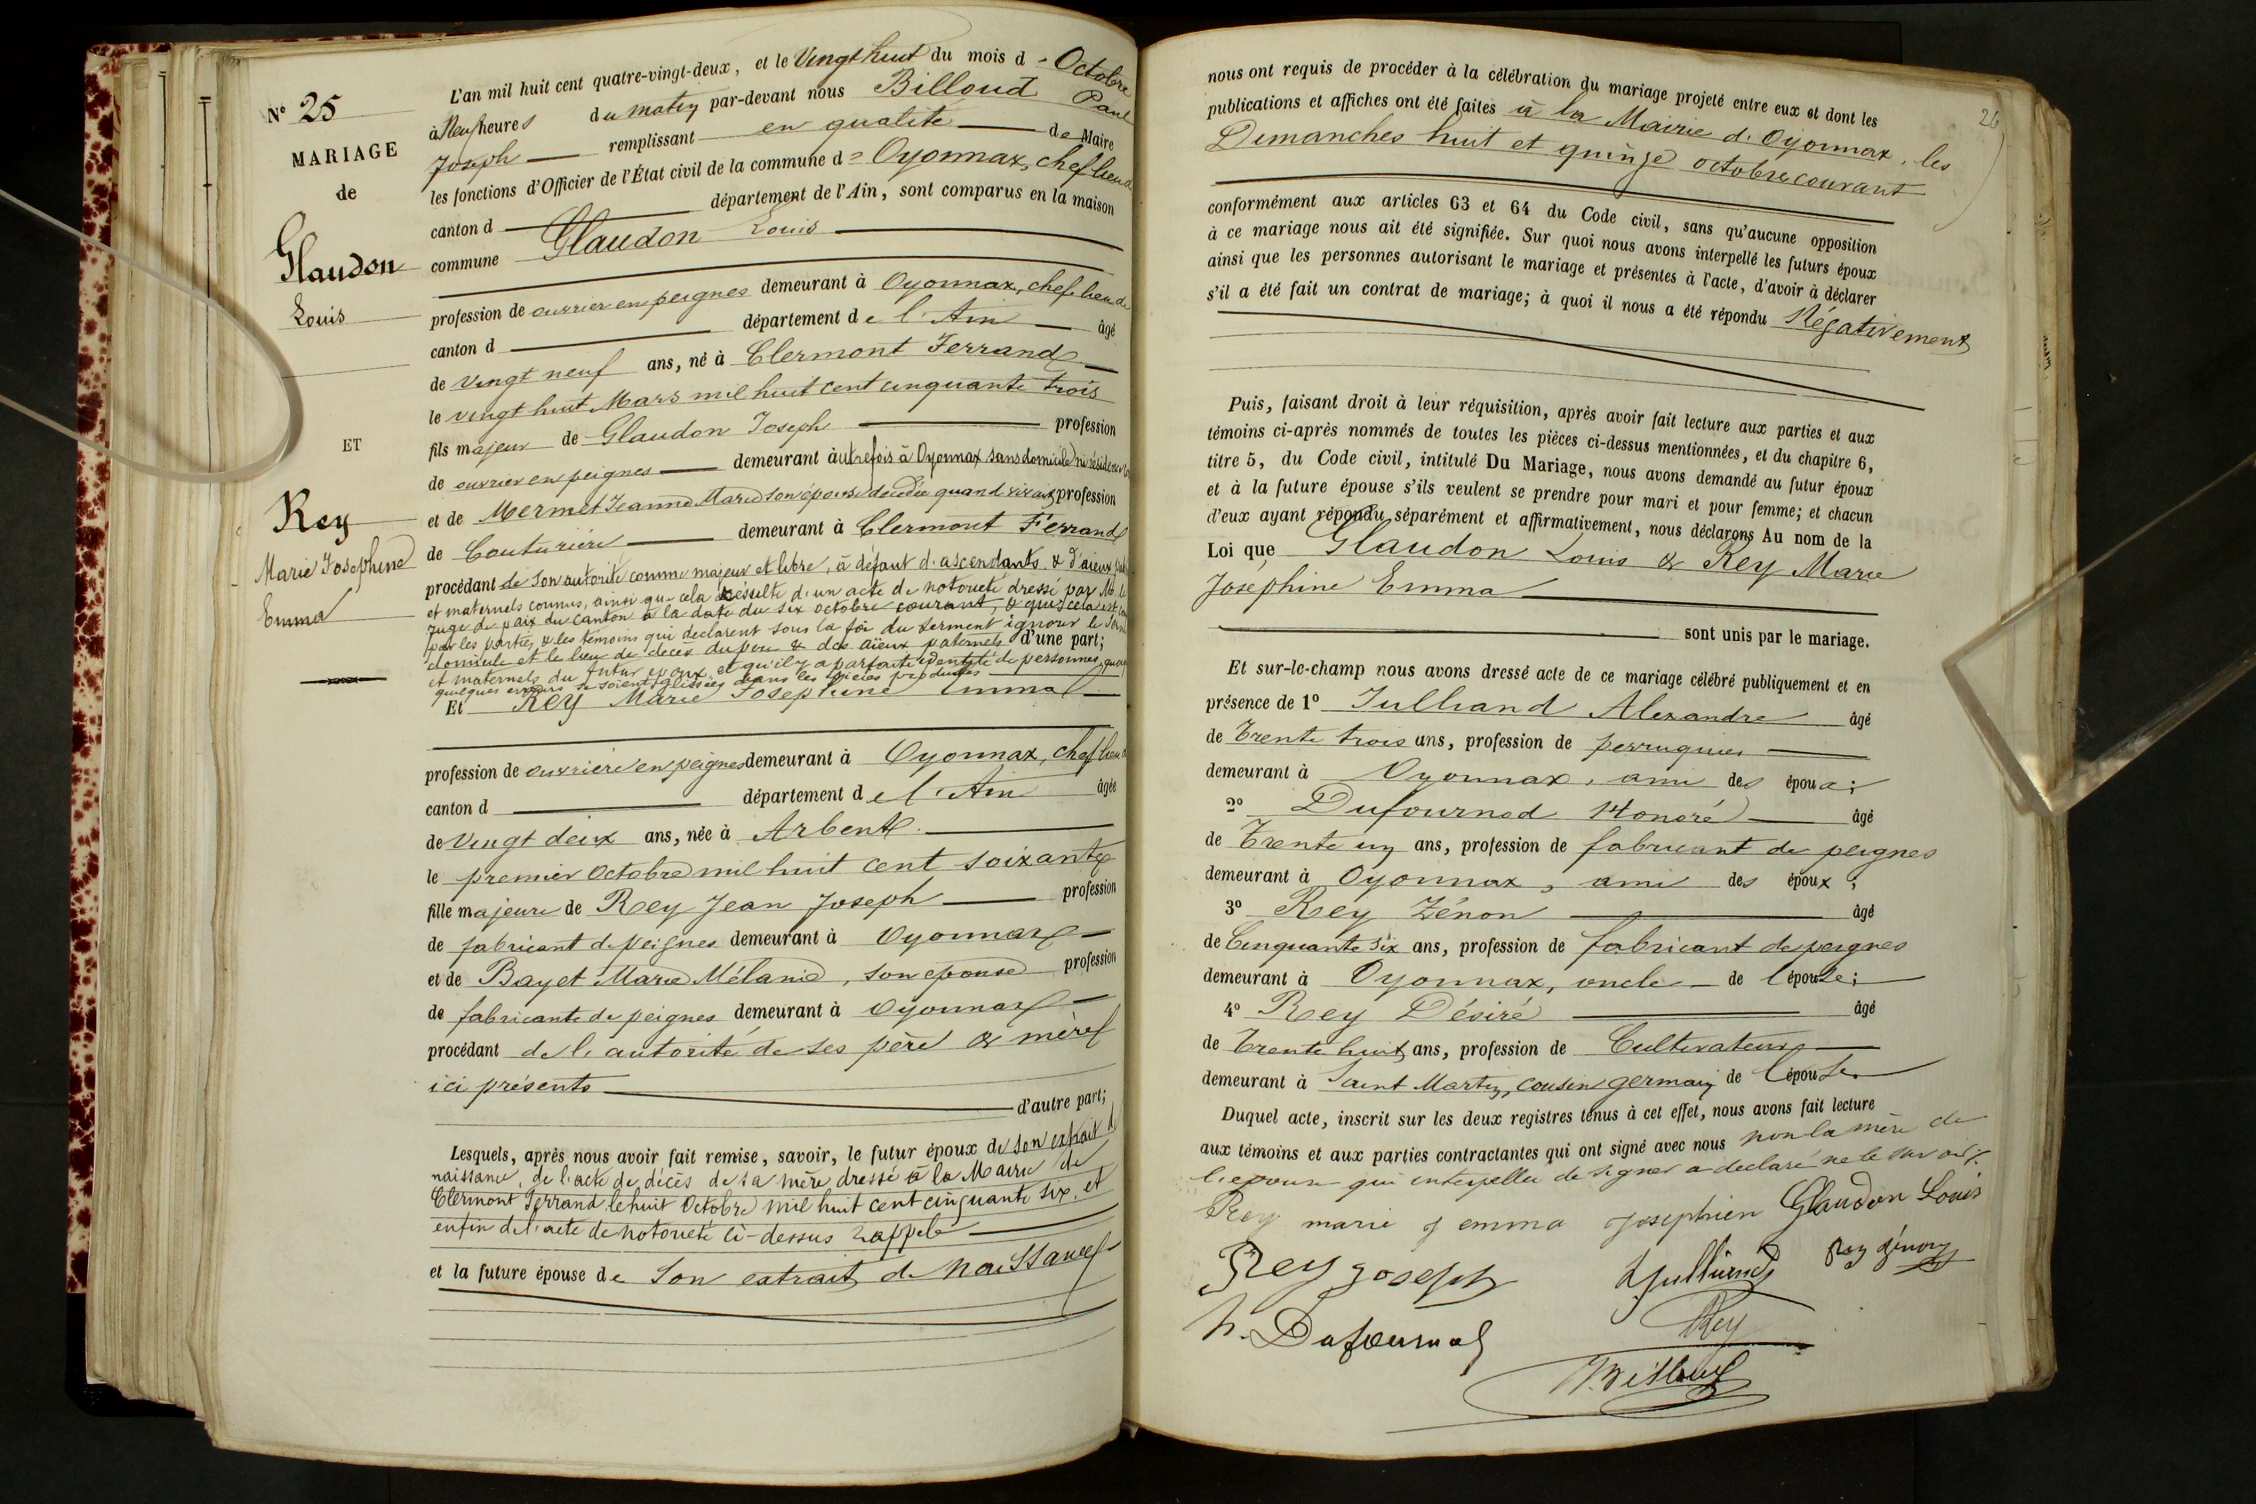 N° 25
MARIAGE
de
Glaudon
Louis
ET
Rey
Marie Josephine
Emma
L'an mil huit cent quatre-vingt-deux, et le Vingt huit du mois d'Octobre
à Neuf heures du matin par-devant nous Billoud Paul
Joseph remplissant en qualité de Maire
les fonctions d'Officier de l'État civil de la commune d'Oyonnax, chef lieu de
canton d département de l'Ain, sont comparus en la maison
commune Glaudon Louis
profession de ouvrier en peignes demeurant à Oyonnax, chef lieu de
canton d département de l'Ain âgé
de vingt neuf ans, né à Clermont Ferrand
le vingt huit Mars mil huit cent cinquante trois
fils majeur de Glaudon Joseph profession
de ouvrier en peignes demeurant autrefois à Oyonnax sans domicile ni résidence
et de Mermet Jeanne Marie son épouse décédée quand vivait profession
de Couturière demeurant à Clermont Ferrand
procédant de son autorité comme majeur et libre, à défaut d'ascendants & d'aieux
et maternels connus, ainsi que cela résulte d'un acte de notoriété dressé par M. le
juge de paix du canton à la date du six octobre courant, & que cela est
par les parties & les témoins qui déclarent sous la foi du serment ignorer le
domicile et le lieu de décès du père & des aïeux paternels d'une part;
et maternels du futur époux et qu'il y a parfaite identité de personnes, quoique
quelques erreurs se soient glissées dans les pièces produites
Et Rey Marie Josephine Emma
profession de ouvrière en peignes demeurant à Oyonnax, chef lieu de
canton d département de l'Ain âgée
de Vingt deux ans, née à Arbent
le premier Octobre mil huit cent soixante
fille majeure de Rey Jean Joseph profession
de fabricant de peignes demeurant à Oyonnax
et de Bayet Marie Mélanie, son épouse profession
de fabricante de peignes demeurant à Oyonnax
procédant de l'autorité de ses père & mère
ici présents
d'autre part;
Lesquels, après nous avoir fait remise, savoir, le futur époux de son extrait de
naissance, de l'acte de décès de sa mère dressé à la Mairie de
Clermont Ferrand le huit Octobre mil huit cent cinquante six, et
enfin de l'acte de notoriété ci-dessus rappelé
et la future épouse de Son extrait de naissance
26
nous ont requis de procéder à la célébration du mariage projeté entre eux et dont les
publications et affiches ont été faites à la Mairie d'Oyonnax, les
Dimanches huit et quinze octobre courant
conformément aux articles 63 et 64 du Code civil, sans qu'aucune opposition
à ce mariage nous ait été signifiée. Sur quoi nous avons interpellé les futurs époux
ainsi que les personnes autorisant le mariage et présentes à l'acte, d'avoir à déclarer
s'il a été fait un contrat de mariage; à quoi il nous a été répondu Négativement
Puis, faisant droit à leur réquisition, après avoir fait lecture aux parties et aux
témoins ci-après nommés de toutes les pièces ci-dessus mentionnées, et du chapitre 6,
titre 5, du Code civil, intitulé Du Mariage, nous avons demandé au futur époux
et à la future épouse s'ils veulent se prendre pour mari et pour femme; et chacun
d'eux ayant répondu séparément et affirmativement, nous déclarons Au nom de la
Loi que Glaudon Louis & Rey Marie
Joséphine Emma
sont unis par le mariage.
Et sur-le-champ nous avons dressé acte de ce mariage célébré publiquement et en
présence de 1° Julliand Alexandre âgé
de Trente trois ans, profession de perruquier
demeurant à Oyonnax, ami des époux;
2° Dufournod Honoré âgé
de Trente un ans, profession de fabricant de peignes
demeurant à Oyonnax, ami des époux;
3° Rey Zénon âgé
de Cinquante six ans, profession de fabricant de peignes
demeurant à Oyonnax, oncle de l'épouse;
4° Rey Désiré âgé
de Trente huit ans, profession de Cultivateur
demeurant à Saint Martin, cousin germain de l'épouse.
Duquel acte, inscrit sur les deux registres tenus à cet effet, nous avons fait lecture
aux témoins et aux parties contractantes qui ont signé avec nous non la mère de
l'épouse qui interpellée de signer a déclaré ne le savoir.
Rey marie j emma josephien Glaudon Louis
Rey joseph Julliand Rey zénon
h. Dufournod Rey
Billoud